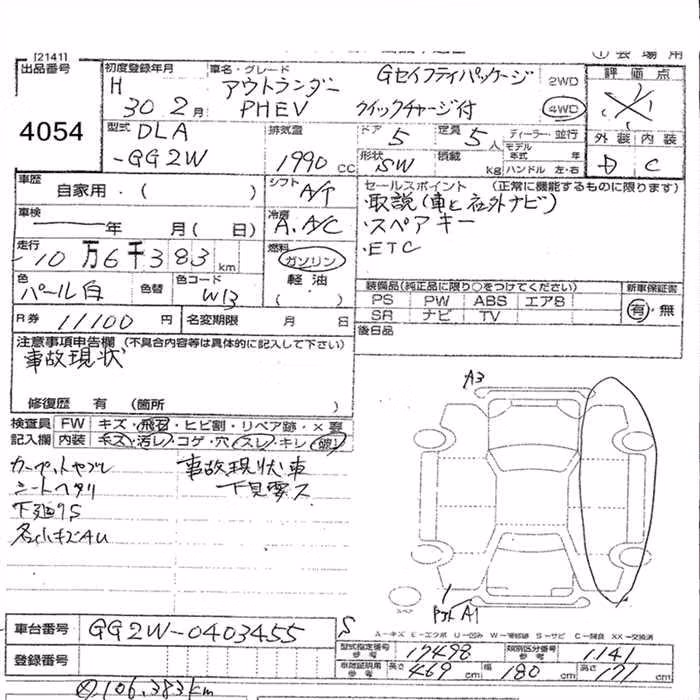 [2141]
出品番号
4054
初度登録年月
H
30 2月
車名・グレード
アウトランダー
PHEV
Gセイフティパッケージ
クイックチャージ付
2WD
4WD
会場用
評価点
外装 内装
D C
型式 DLA
-GG2W
排気量
1990 cc
ドア 5
定員 5人
形状 SW
積載 kg
ディーラー・並行
モデル年式 年
ハンドル 左・右
車歴
自家用・( )
シフト A/T
セールスポイント (正常に機能するものに限ります)
・取説(車と社外ナビ)
・スペアキー
・ETC
車検
年 月( 日)
冷房
A.A/C
走行
10万6千383 km
燃料
ガソリン
軽油
( )
色
パール白
色替
色コード
W13
装備品(純正品に限り○をつけてください)
PS PW ABS エアB
SR ナビ TV
新車保証書
有・無
R券 11100 円
名変期限 月 日
後日品
注意事項申告欄 (不具合内容等は具体的に記入して下さい)
事故現状
修復歴 有 (箇所 )
検査員 FW キズ・飛石・ヒビ割・リペア跡・×要
記入欄 内装 キズ・汚レ・コゲ・穴・スレ・キレ
カーペットヤブレ
シートヘタリ
下廻りS
各小キズAU
事故現状車
下見要ス
A3
A1
スペア
S
車台番号 GG2W-0403455
登録番号
A-キズ E-エクボ U-凹ミ W-補修跡 S-サビ C-腐食 XX-交換済
型式指定番号 参考 17498
類別区分番号 参考 1141
車検証明用 参考 長さ 469 cm 幅 180 cm 高さ 171 cm
106,383km